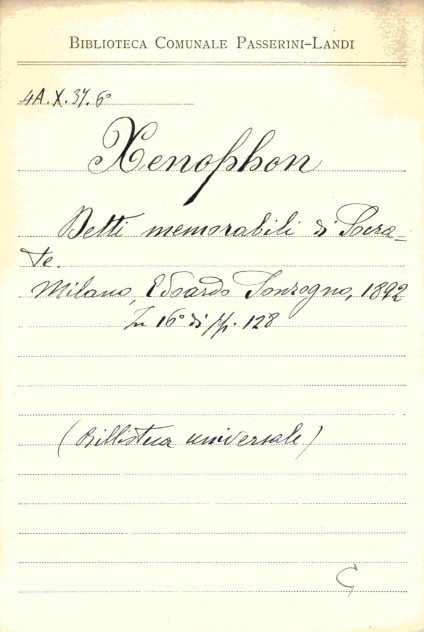 BIBLIOTECA COMUNALE PASSERINI-LANDI
4A.X.37.6°
Xenophon
Detti memorabili di Socra-
te.
Milano, Edoardo Sonzogno, 1892
In 16° di pp. 128
(Biblioteca universale)
C